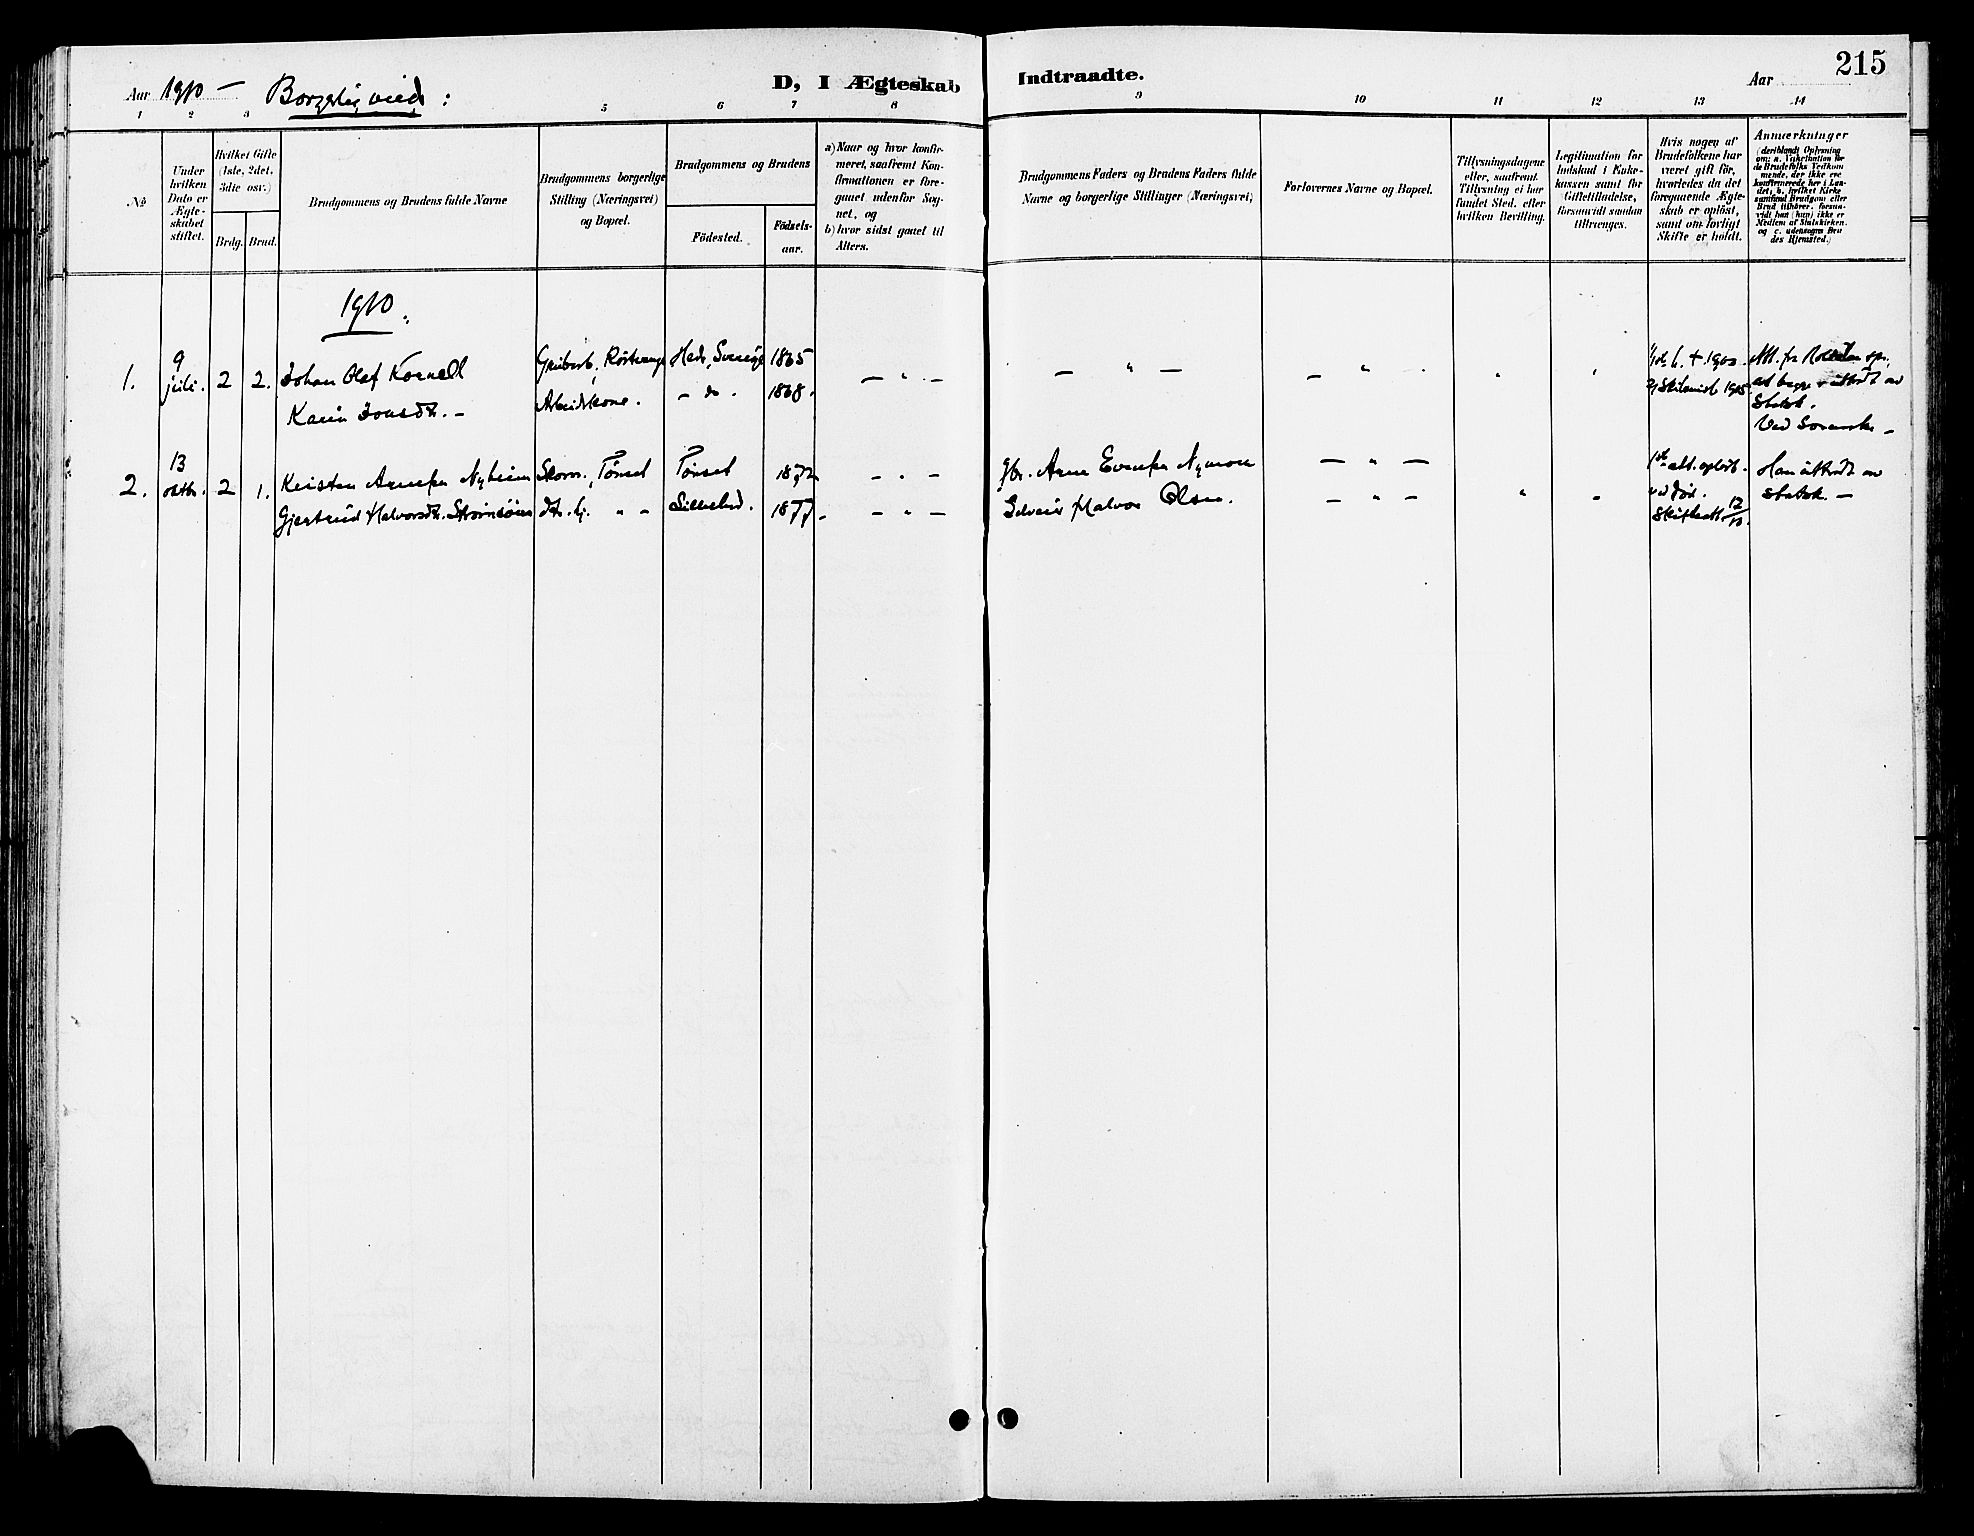 Aar 1910 — Borgerlig viede:
D, I Ægteskab Indtraadte.
Aar 215
1 2 3 5 6 7 8 9 10 11 12 13 14
№
Under hvilken Dato er Ægte-skabet stiftet.
Hvilket Gifte (1ste, 2det, 3die osv.)
Brdg. Brud.
Brudgommens og Brudens fulde Navne
Brudgommens borgerlige Stilling (Næringsvei) og Bopæl.
Brudgommens og Brudens
Födested. Födsels-aar.
a) Naar og hvor konfir-meret, saafremt Kon-firmationen er fore-gaaet udenfor Sog-net, og
b) hvor sidst gaaet til Alters.
Brudgommens Faders og Brudens Faders fulde Navne og borgerlige Stillinger (Næringsvei)
Forlovernes Navne og Bopæl.
Tillysningsdagene eller, saafremt Tillysning ei har fundet Sted, efter hvilken Bevilling.
Legitimation for Indskud i Enke-kassen samt for Giftetilladelse, forsaavidt saadan tiltrænges.
Hvis nogen af Brudefolkene har været gift för, hvorledes da det foregaaende Ægte-skab er oplöst, samt om lovligt Skifte er holdt.
Anmærkninger (deriblandt Oplysning om: a. Vaksination for de Brudefolks Vedkom mende, der ikke ere konfirmerede her i Lan-det, b. hvilket Kirke samfund Brudgom eller Brud tilhörer, forsaa-vidt han (hun) ikke er Medlem af Statskirken. og c. udensogns Bru des Hjemsted.)
1910.
1. 9 juli. 2 2. Johan Olaf Kornell Röstvange Hede, Sverige 1865 — " —
Karin Jonsdt. — Arbeidskone. — do. 1868.
Ved Sorenskr —
2. 13 oktbr. 2 1. Kristen Arnesen Nyheim Skom., Tönset Tönset 1872 — " — Arne Evensen Nymoen — " — alt. oplöst Han uttrådt av
Gjertrud Halvorsdt. Strömsöien dtr. hj. " — 1877. — " — Halvor Olsen. — " — ved död. statsk. —
Skifteatt. 12/10.